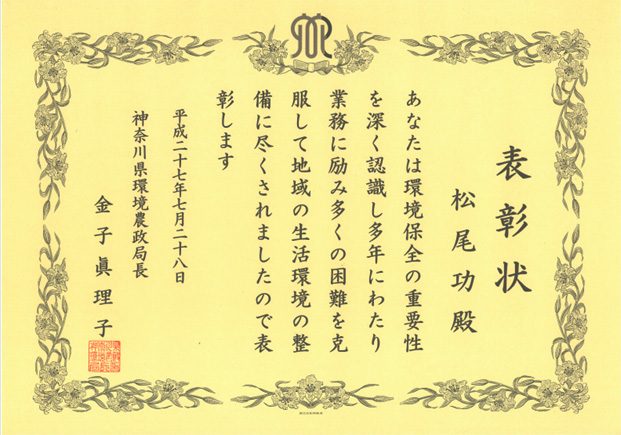 表彰状
松尾功殿
あなたは環境保全の重要性
を深く認識し多年にわたり
業務に励み多くの困難を克
服して地域の生活環境の整
備に尽くされましたので表
彰します
平成二十七年七月二十八日
神奈川県環境農政局長
金子眞理子